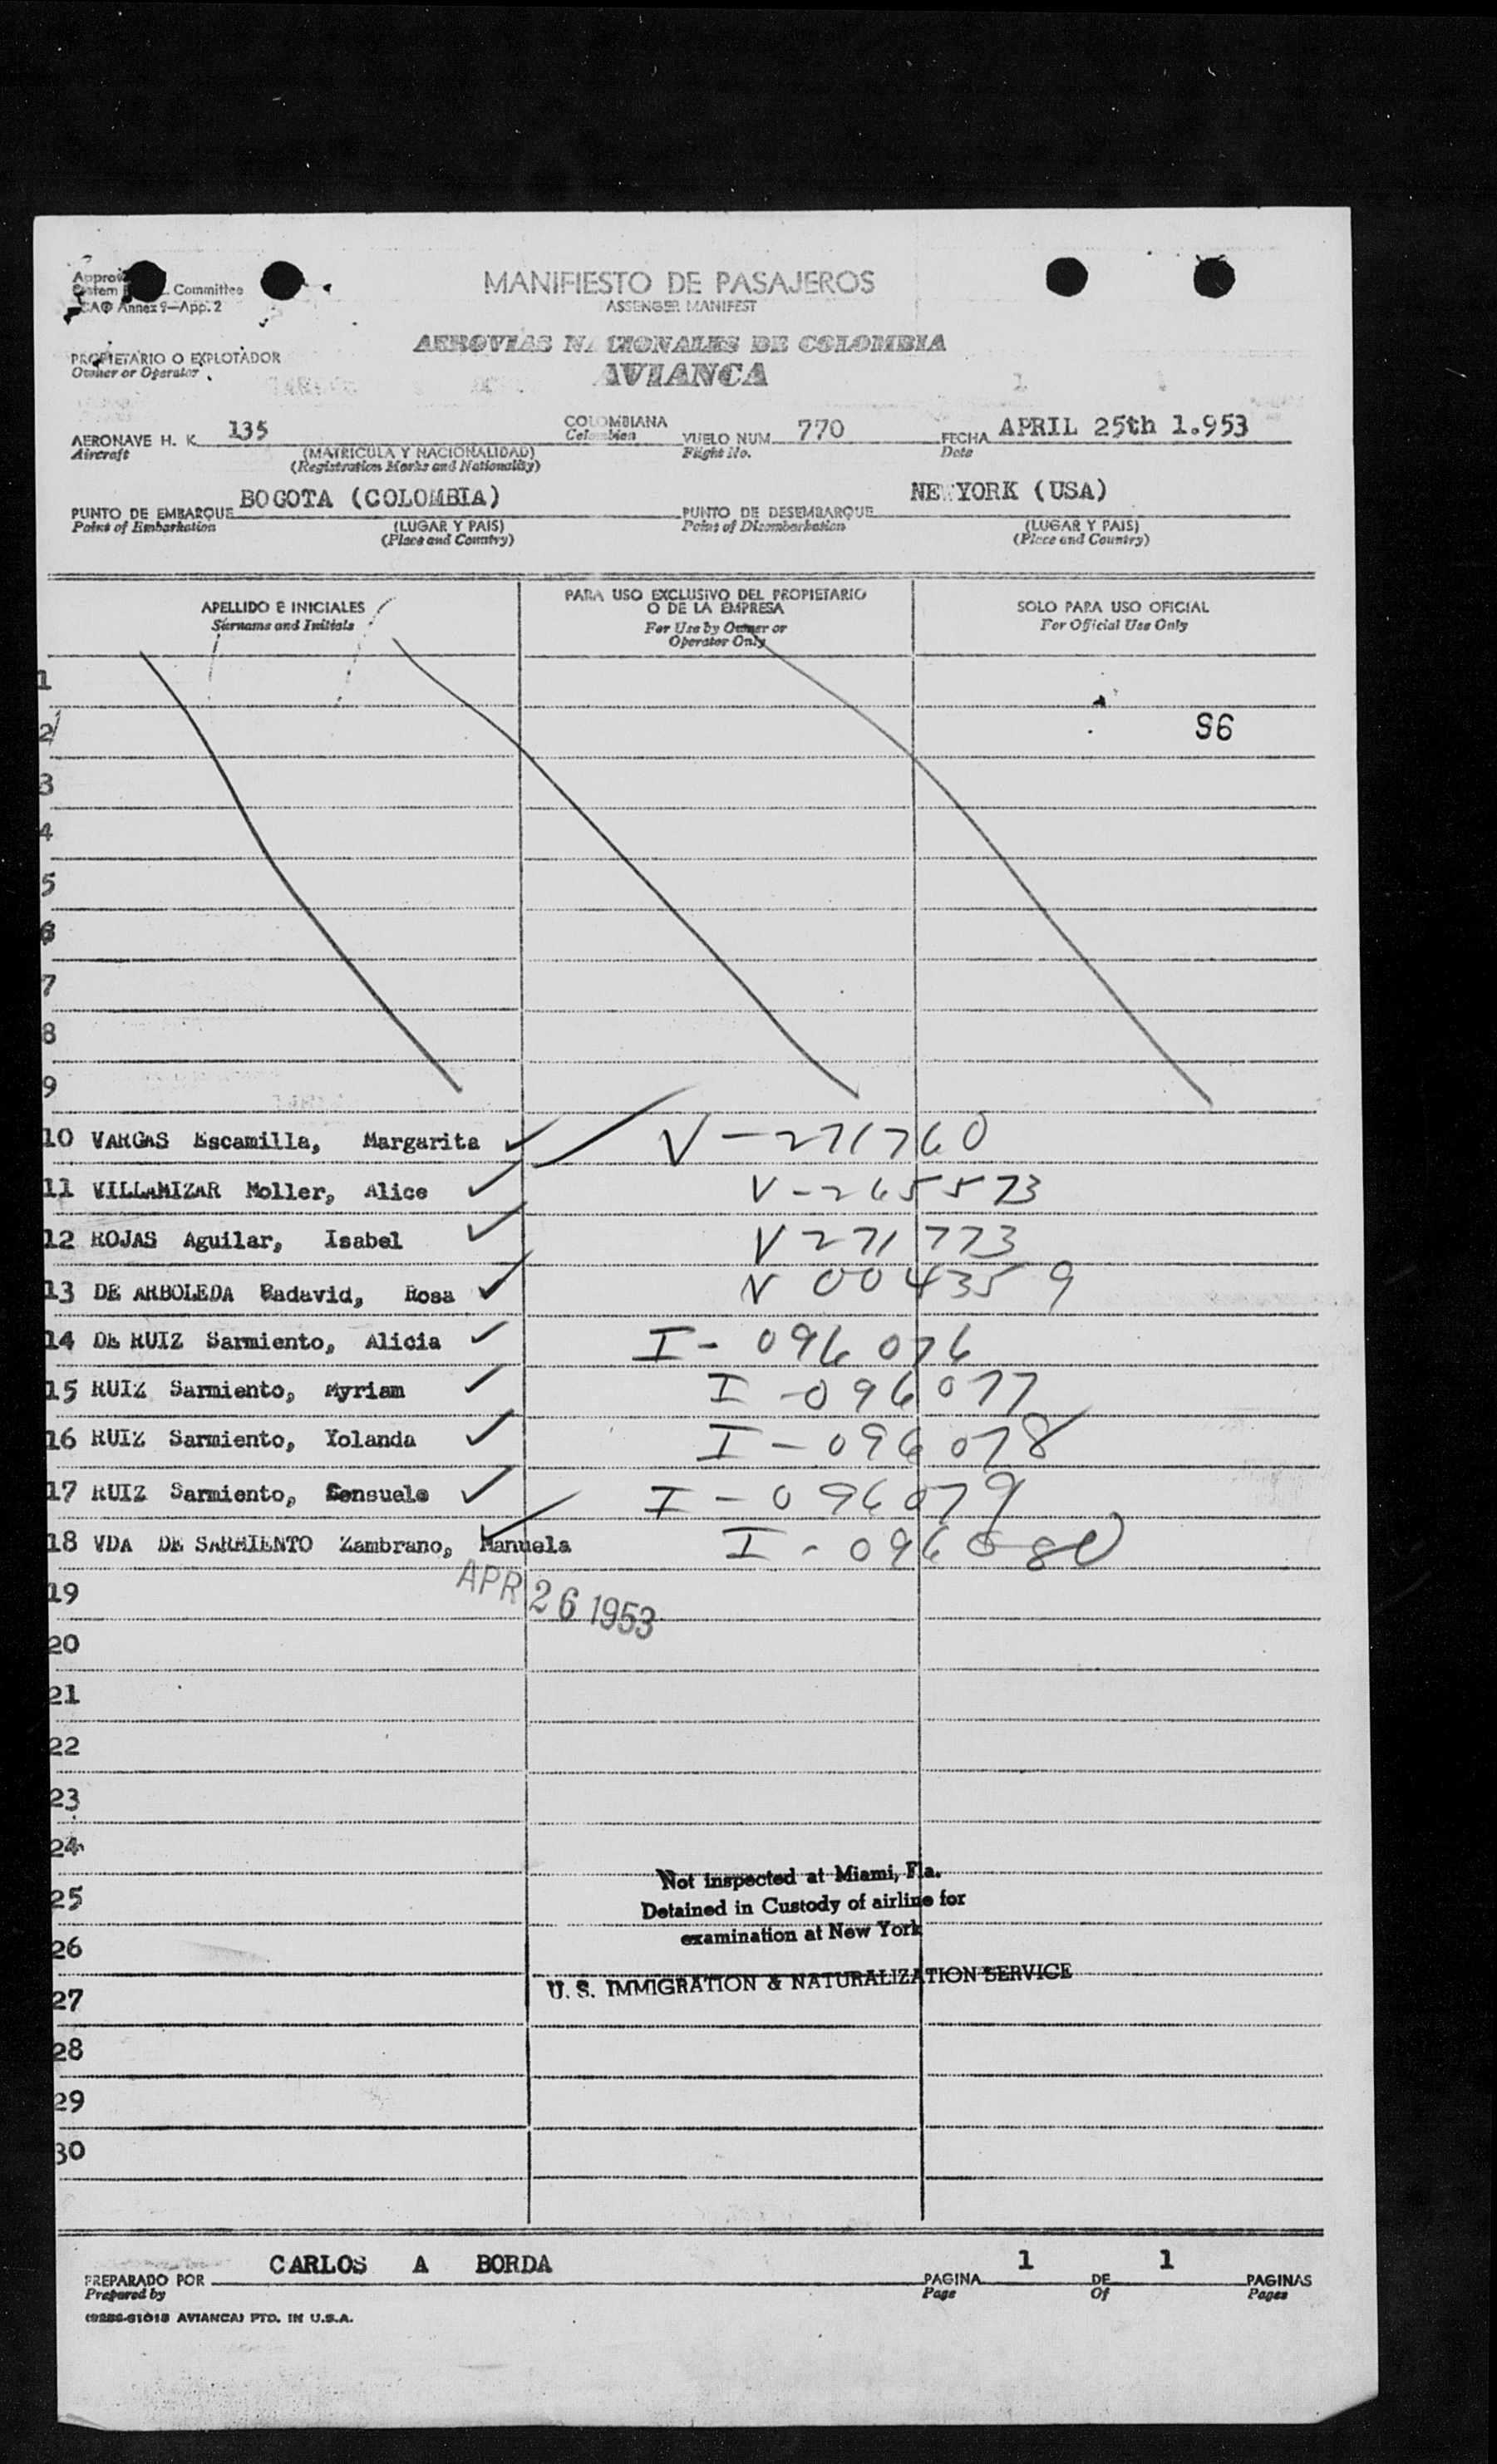 MANIFIESTO DE PASAJEROS
ASSENGER MANIFEST
Committee
Annex 9—App. 2
AEROVIAS NACIONALES DE COLOMBIA
AVIANCA
PROPIETARIO O EXPLOTADOR
Owner or Operator
AERONAVE H. K. 135 COLOMBIANA VUELO NUM 770 FECHA APRIL 25th 1.953
Aircraft (MATRICULA Y NACIONALIDAD) Colombian Flight No. Date
(Registration Marks and Nationality)
PUNTO DE EMBARQUE BOGOTA (COLOMBIA) PUNTO DE DESEMBARQUE NE YORK (USA)
Point of Embarkation (LUGAR Y PAIS) Point of Disembarkation (LUGAR Y PAIS)
(Place and Country) (Place and Country)
APELLIDO E INICIALES PARA USO EXCLUSIVO DEL PROPIETARIO O DE LA EMPRESA SOLO PARA USO OFICIAL
Surname and Initials For Use by Owner or Operator Only For Official Use Only
1
2
3
4
5
6
7
8
9
10 VARGAS Escamilla, Margarita V-271760
11 VILLAMIZAR Moller, Alice V-265573
12 ROJAS Aguilar, Isabel V271773
13 DE ARBOLEDA Badavid, Rosa V 004359
14 DE RUIZ Sarmiento, Alicia I-096076
15 RUIZ Sarmiento, Myriam I-096077
16 RUIZ Sarmiento, Yolanda I-096078
17 RUIZ Sarmiento, Consuelo I-096079
18 VDA DE SARMIENTO Zambrano, Manuela I-096080
APR 26 1953
19
20
21
22
23
24
25
26
27
28
29
30
Not inspected at Miami, Fla.
Detained in Custody of airline for
examination at New York
U. S. IMMIGRATION & NATURALIZATION SERVICE
PREPARADO POR CARLOS A BORDA PAGINA 1 DE 1 PAGINAS
Prepared by Page Of Pages
AVIANCA) PTD. IN U.S.A.